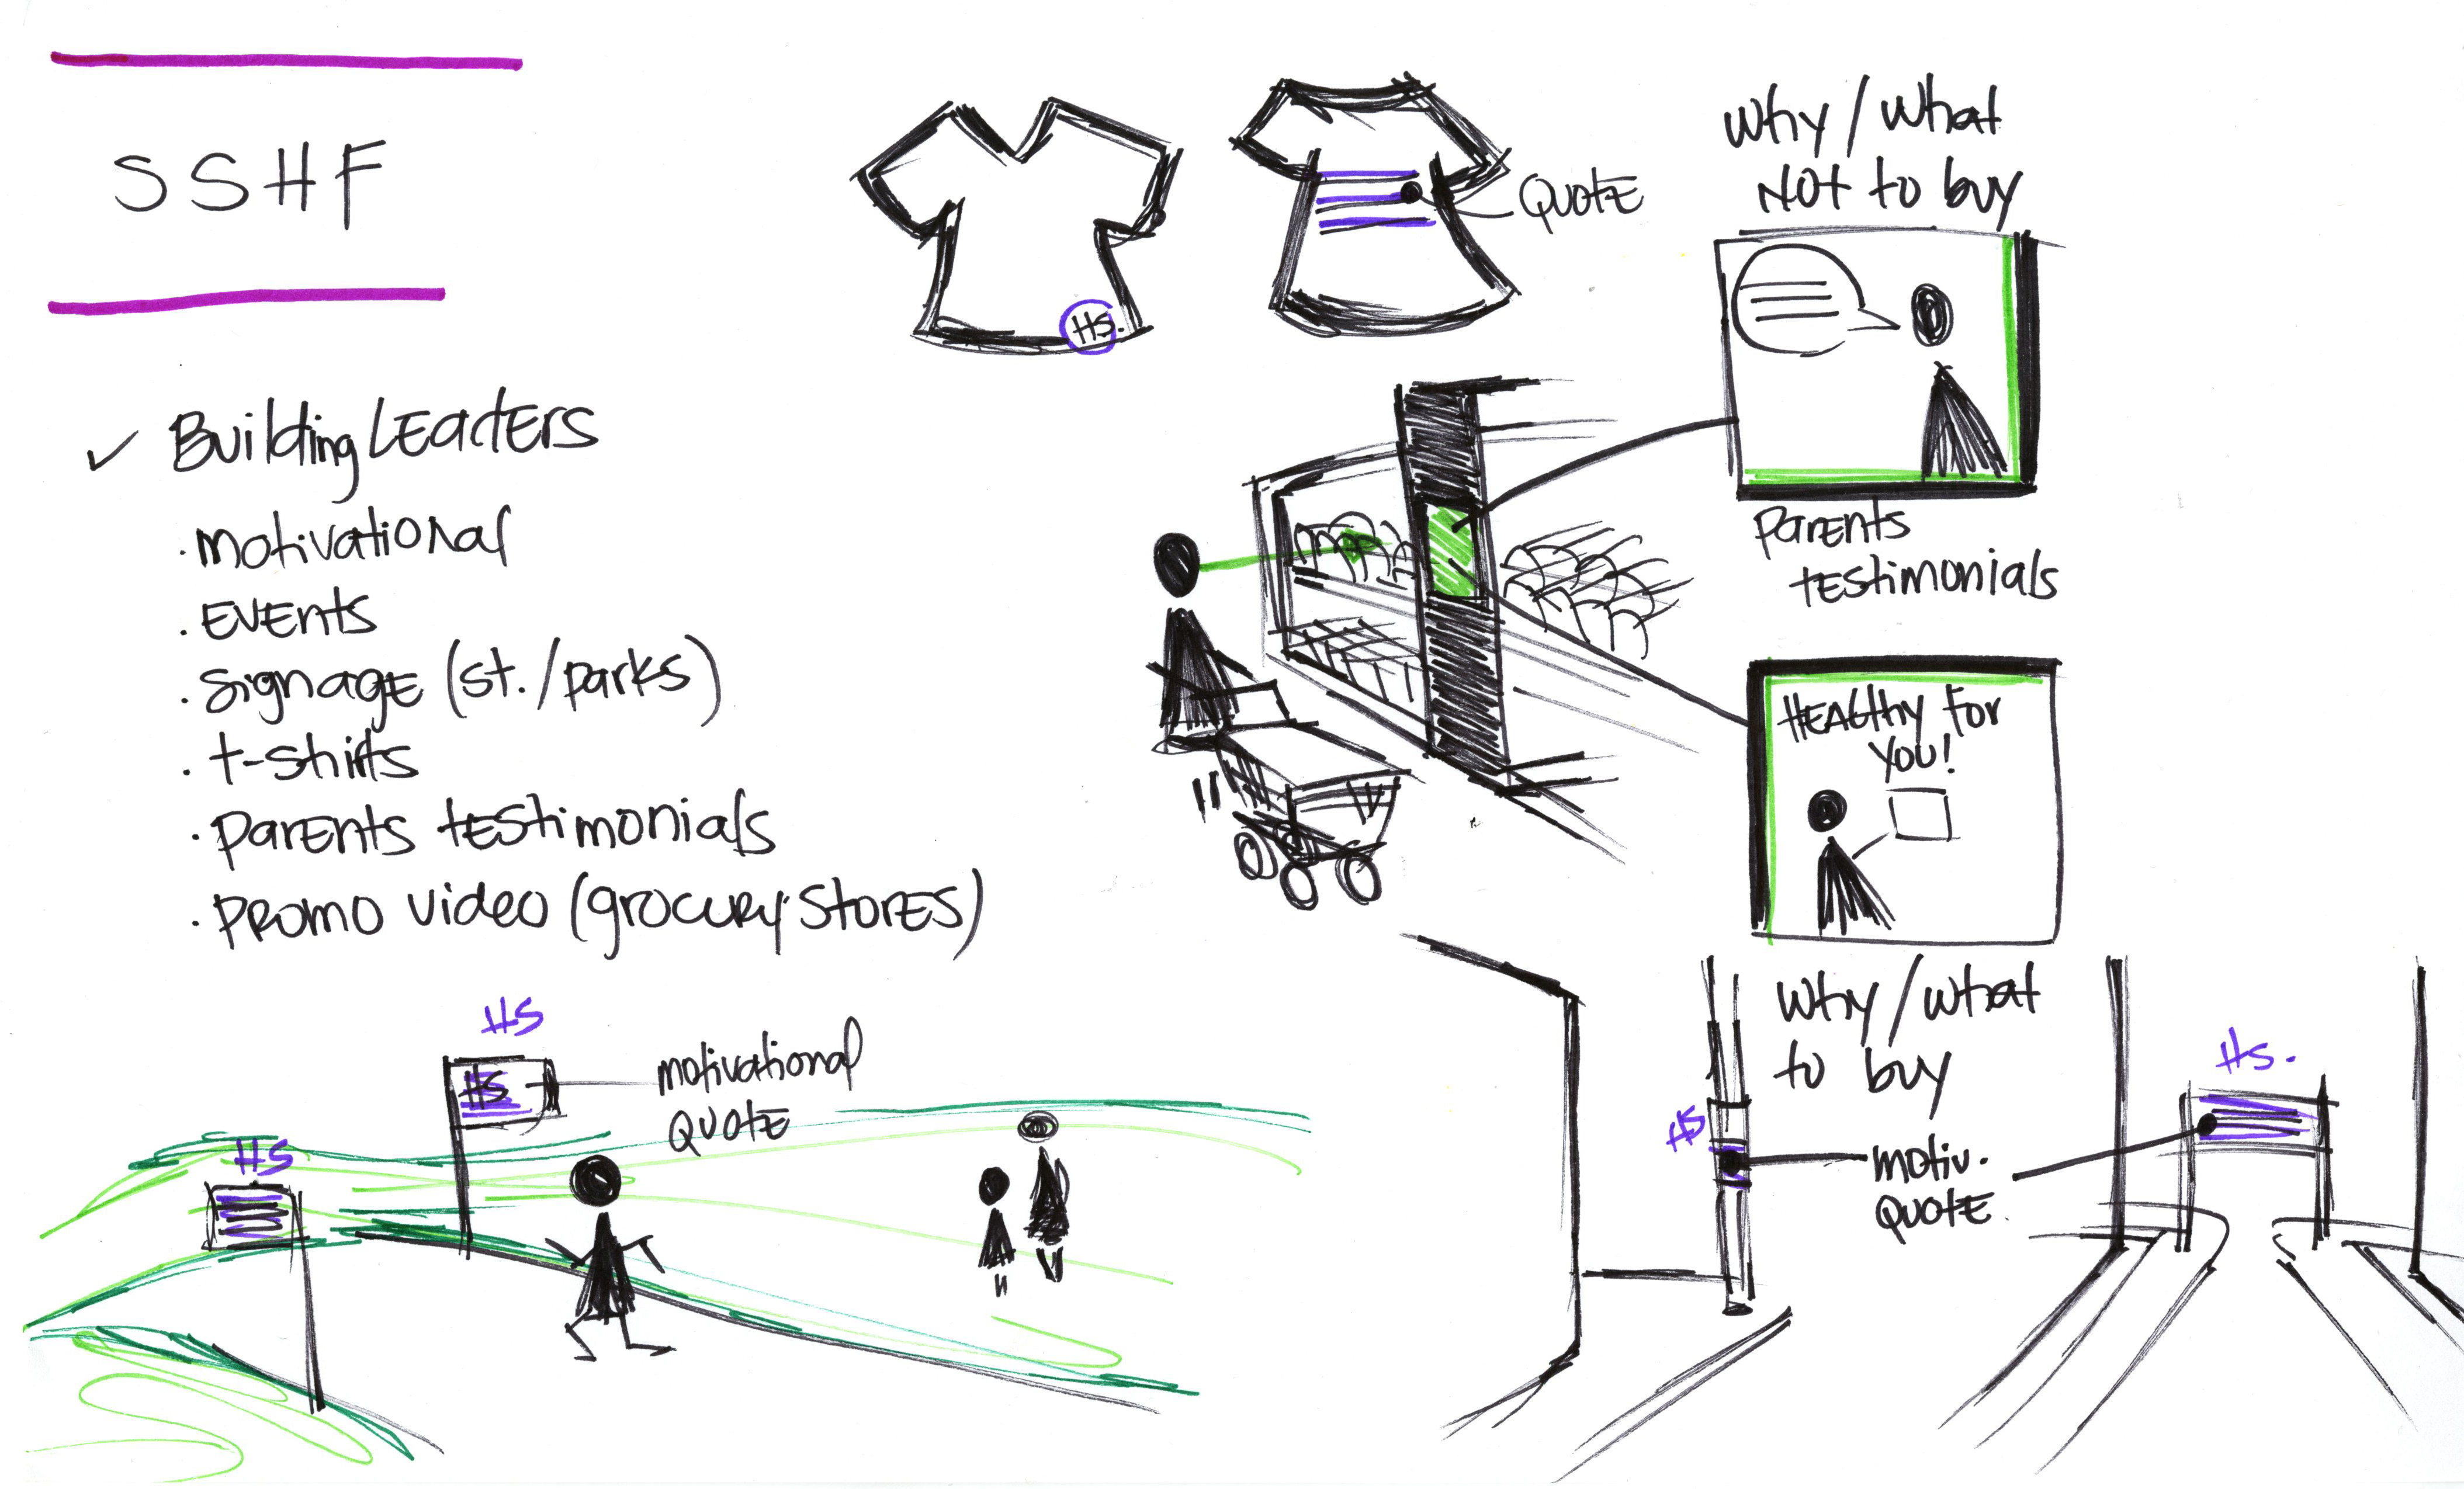 SSHF
✓ Building Leaders
· motivational
· Events
· signage (st./parks)
· t-shirts
· parents testimonials
· promo video (grocury stores)
HS.
Quote
Why/What
NOT to buy
parents
testimonials
Healthy for
you!
Why/What
to buy
HS
HS
motivational
Quote
HS
HS
motiv.
Quote.
HS.